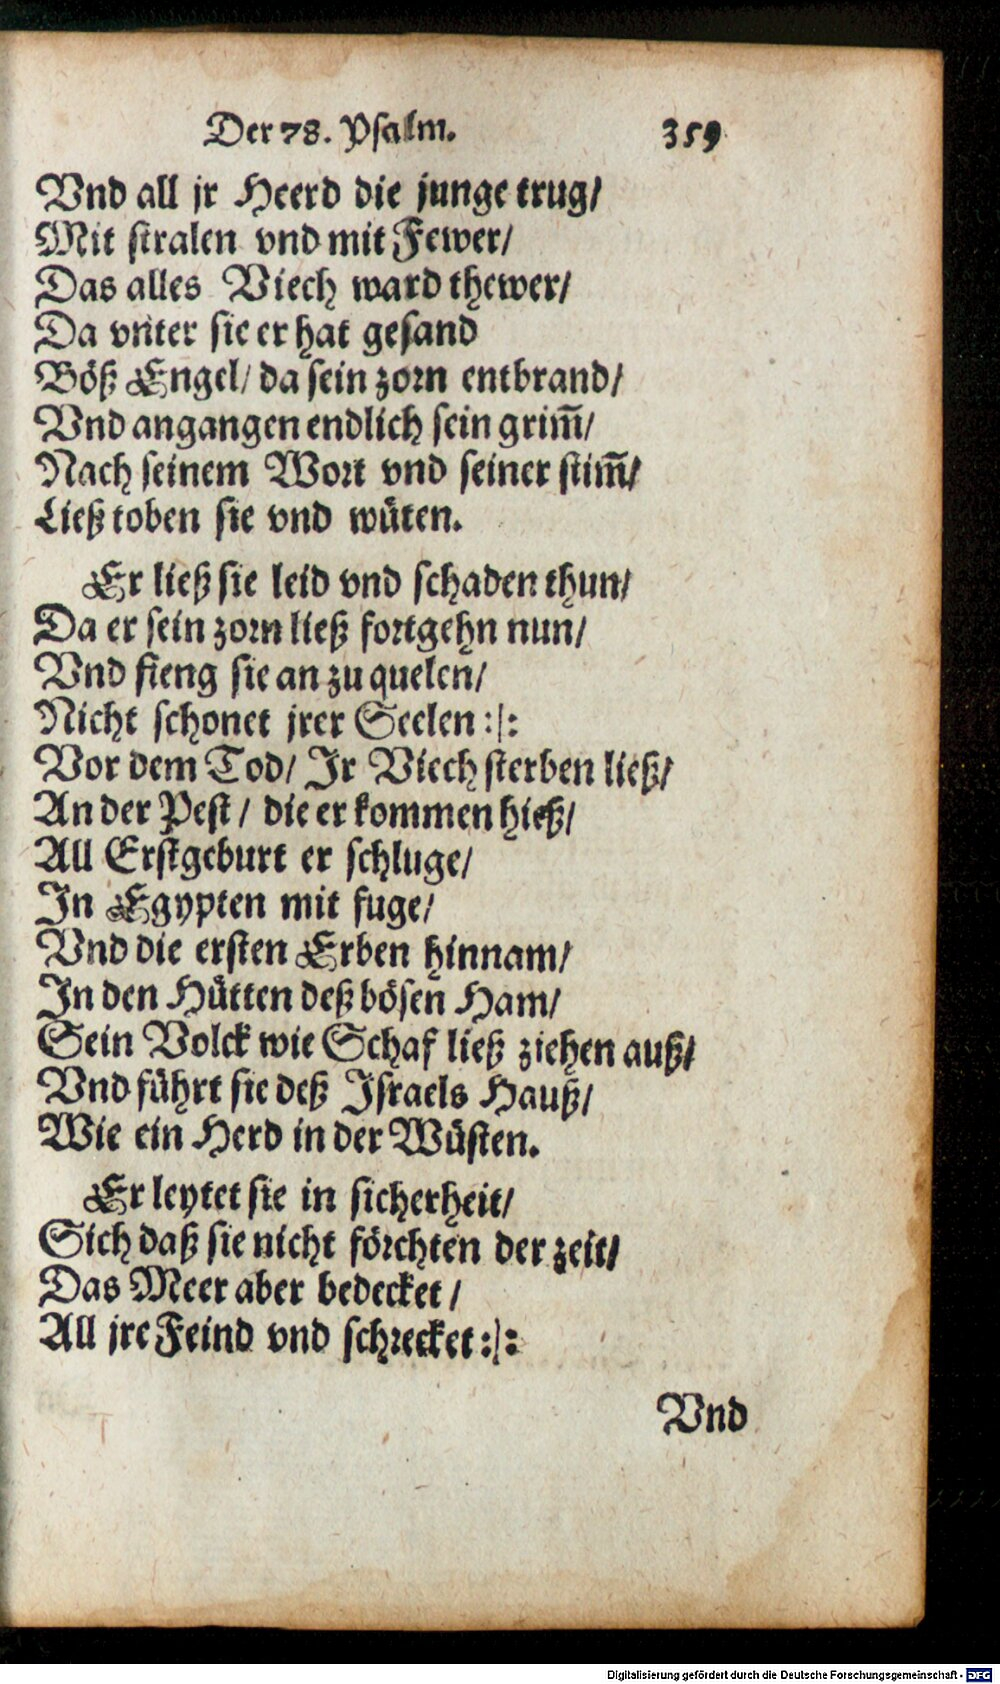 Der 78. Psalm. 359
Vnd all jr Heerd die junge trug/
Mit stralen vnd mit Fewer/
Das alles Viech ward thewer/
Da vnter sie er hat gesand
Böß Engel/ da sein zorn entbrand/
Vnd angangen endlich sein grim̃/
Nach seinem Wort vnd seiner stim̃/
Ließ toben sie vnd wüten.
Er ließ sie leid vnd schaden thun/
Da er sein zorn ließ fortgehn nun/
Vnd fieng sie an zu quelen/
Nicht schonet jrer Seelen :|:
Vor dem Tod/ Jr Viech sterben ließ/
An der Pest/ die er kommen hieß/
All Erstgeburt er schluge/
In Egypten mit fuge/
Vnd die ersten Erben hinnam/
In den Hütten deß bösen Ham/
Sein Volck wie Schaf ließ ziehen auß/
Vnd führt sie deß Israels Hauß/
Wie ein Herd in der Wüsten.
Er leytet sie in sicherheit/
Sich daß sie nicht förchten der zeit/
Das Meer aber bedecket/
All jre Feind vnd schrecket :|:
Vnd
Digitalisierung gefördert durch die Deutsche Forschungsgemeinschaft - DFG